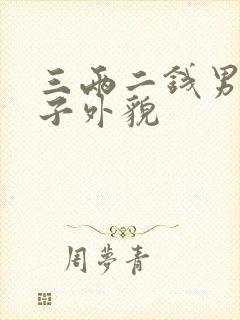 三两二钱男
子外貌
周夢青